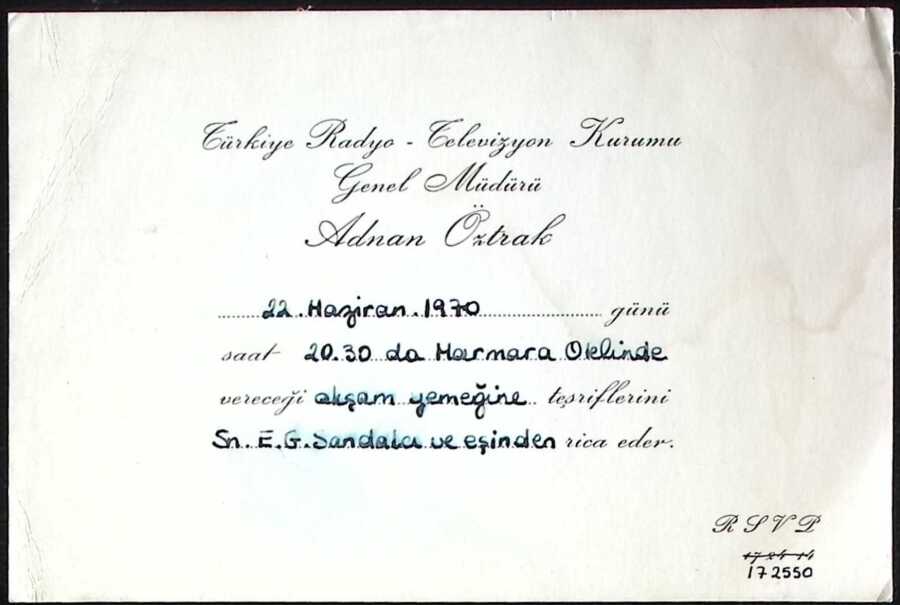 Türkiye Radyo - Televizyon Kurumu
Genel Müdürü
Adnan Öztrak
22. Haziran. 1970 günü
saat 20.30 da Marmara Otelinde
vereceği akşam yemeğine teşriflerini
Sn. E. G. Sandalcı ve eşinden rica eder.
R S V P
17 24 14
172550